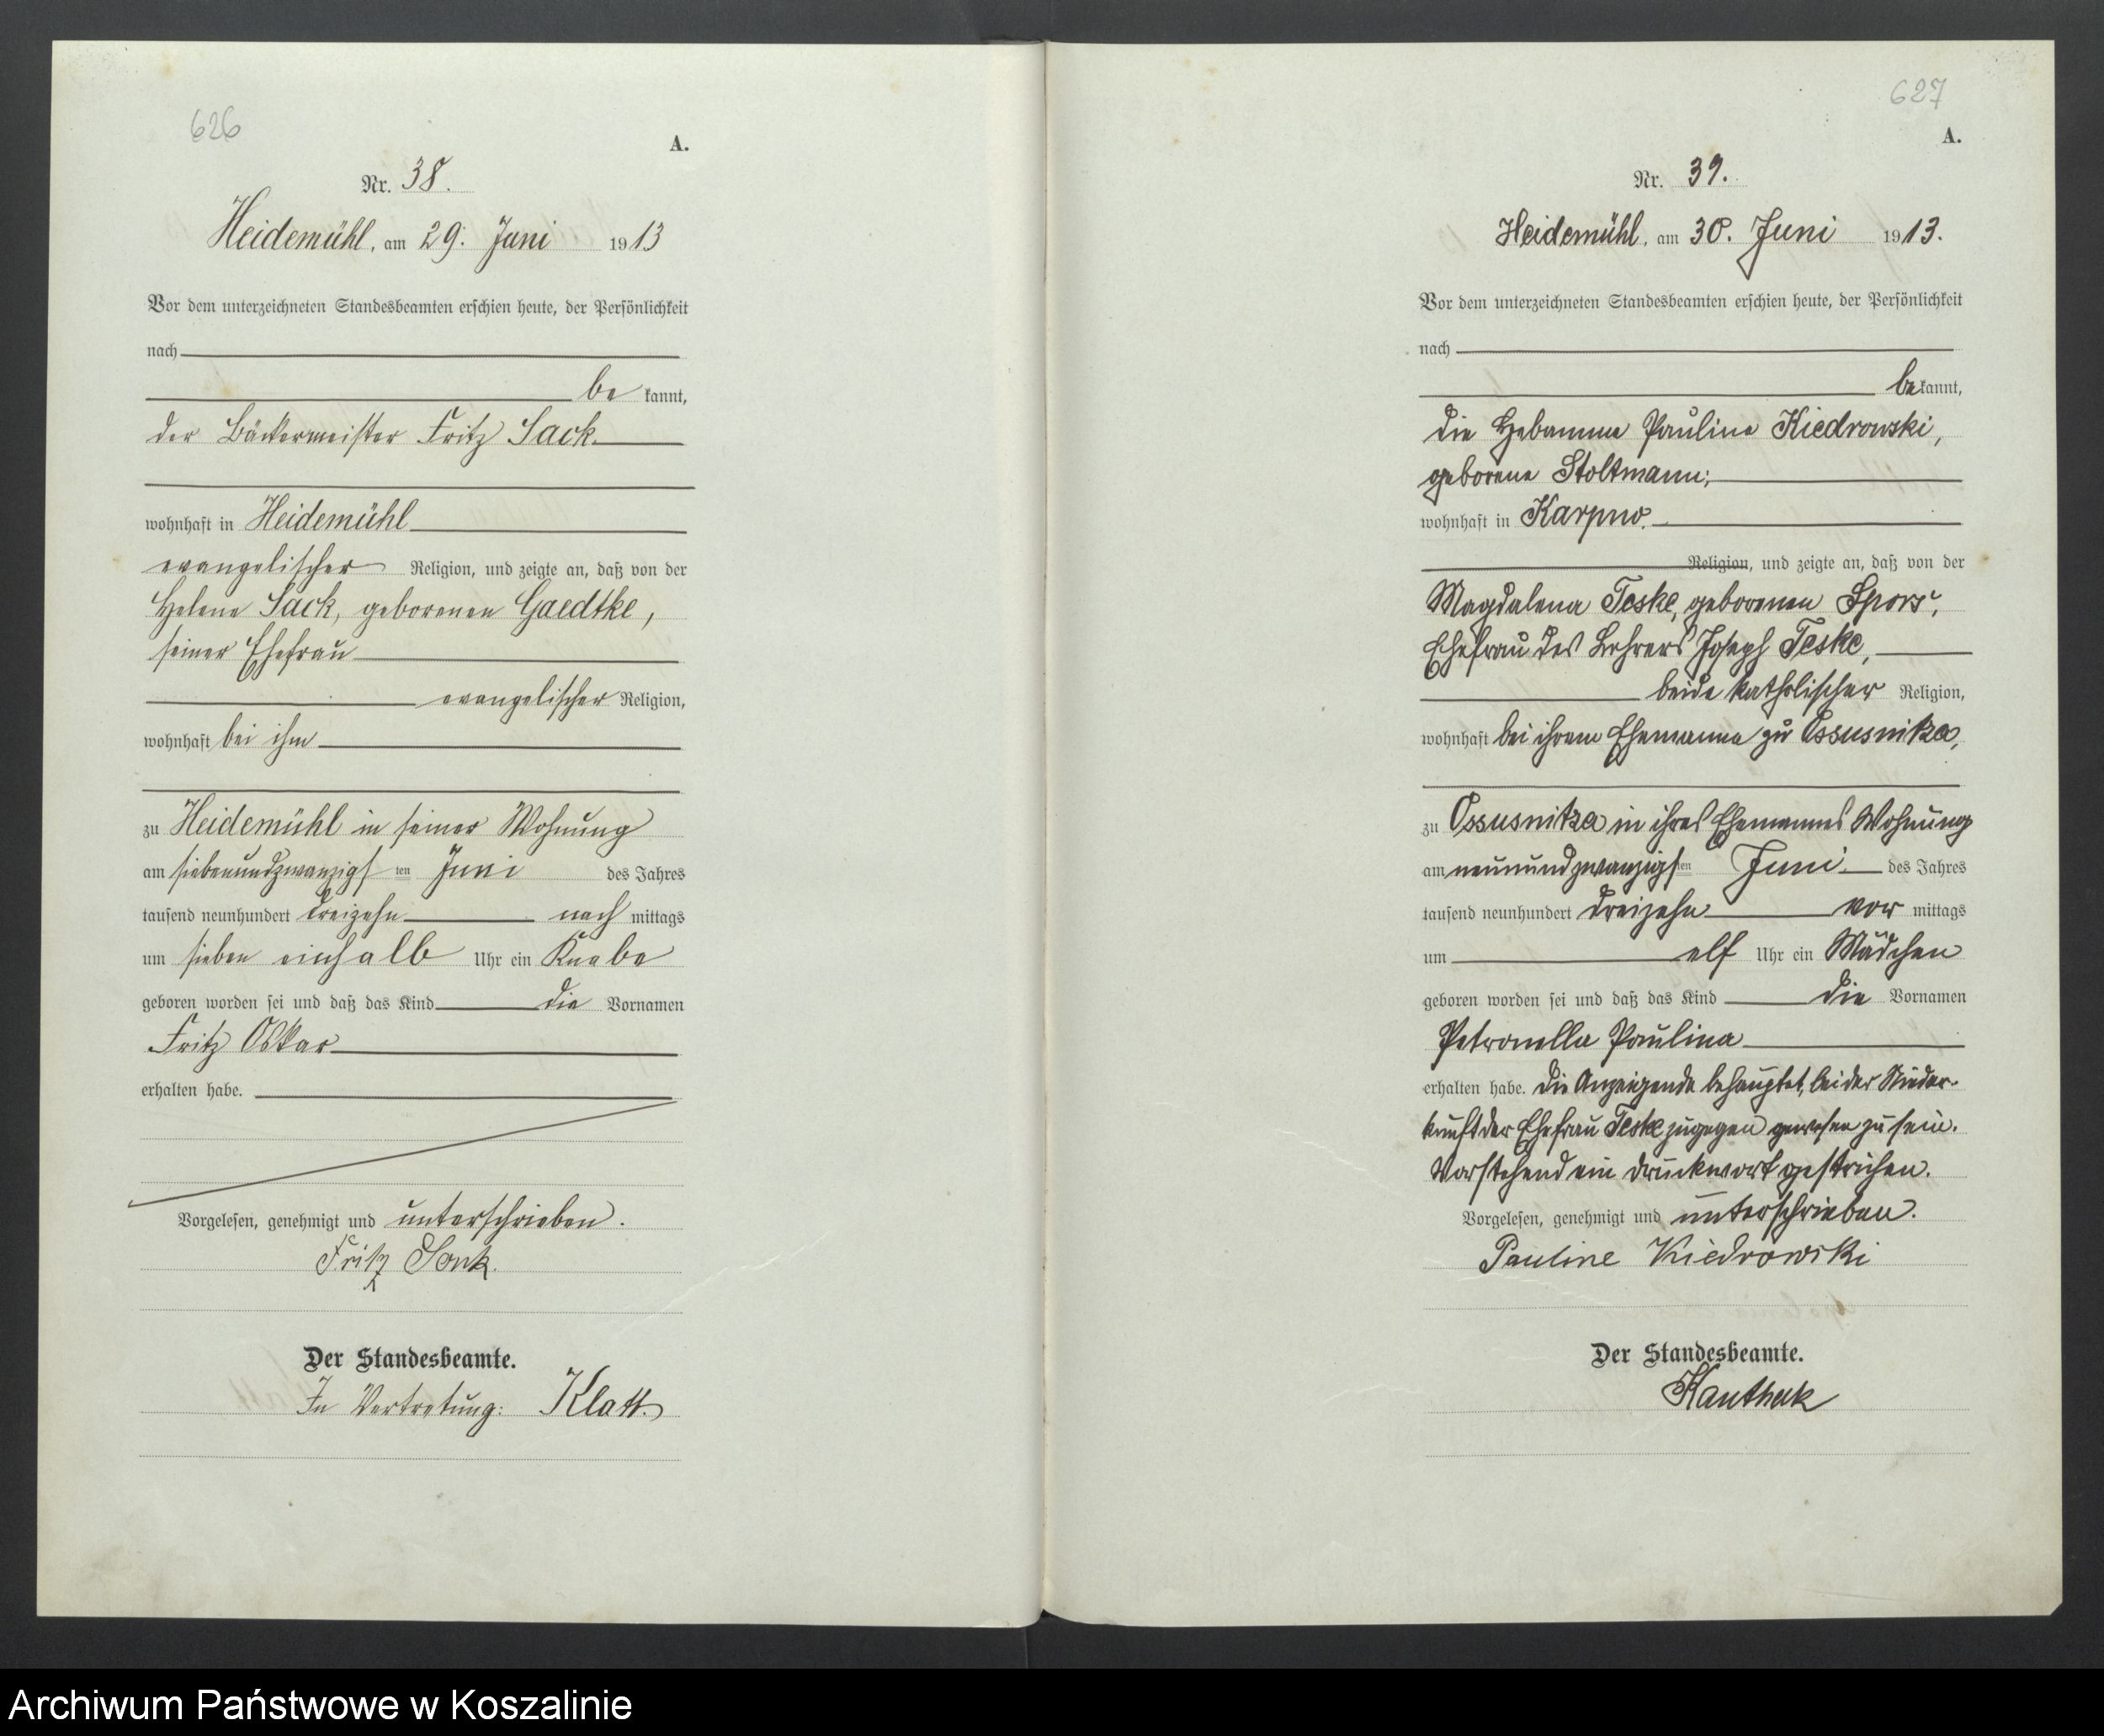 626
A.
Nr. 38.
Heidemühl, am 29. Juni 1913
Vor dem unterzeichneten Standesbeamten erschien heute, der Persönlichkeit
nach
be kannt,
der Bäckermeister Fritz Sack.
wohnhaft in Heidemühl
evangelischer Religion, und zeigte an, daß von der
Helene Sack, geborenen Gaedtke,
seiner Ehefrau
evangelischer Religion,
wohnhaft bei ihm
zu Heidemühl in seiner Wohnung
am siebenundzwanzigsten Juni des Jahres
tausend neunhundert dreizehn nach mittags
um sieben einhalb Uhr ein Knabe
geboren worden sei und daß das Kind die Vornamen
Fritz Oskar
erhalten habe.
Vorgelesen, genehmigt und unterschrieben.
Fritz Sack.
Der Standesbeamte.
In Vertretung: Klatt.
627
A.
Nr. 39.
Heidemühl, am 30. Juni 1913.
Vor dem unterzeichneten Standesbeamten erschien heute, der Persönlichkeit
nach
bekannt,
die Hebamme Pauline Kiedrowski,
geborene Stoltmann;
wohnhaft in Karpno.
Religion, und zeigte an, daß von der
Magdalena Teske, geborenen Spors,
Ehefrau des Lehrers Joseph Teske,
beide katholischer Religion,
wohnhaft bei ihrem Ehemanne zu Ossusnitza,
zu Ossusnitza in ihres Ehemannes Wohnung
am neunundzwanzigsten Juni des Jahres
tausend neunhundert dreizehn vor mittags
um elf Uhr ein Mädchen
geboren worden sei und daß das Kind die Vornamen
Petronella Paulina
erhalten habe. Die Anzeigende behauptet, bei der Nieder-
kunft der Ehefrau Teske zugegen gewesen zu sein.
Vorstehend ein Druckwort gestrichen.
Vorgelesen, genehmigt und unterschrieben.
Pauline Kiedrowski
Der Standesbeamte.
Kanthak
Archiwum Państwowe w Koszalinie